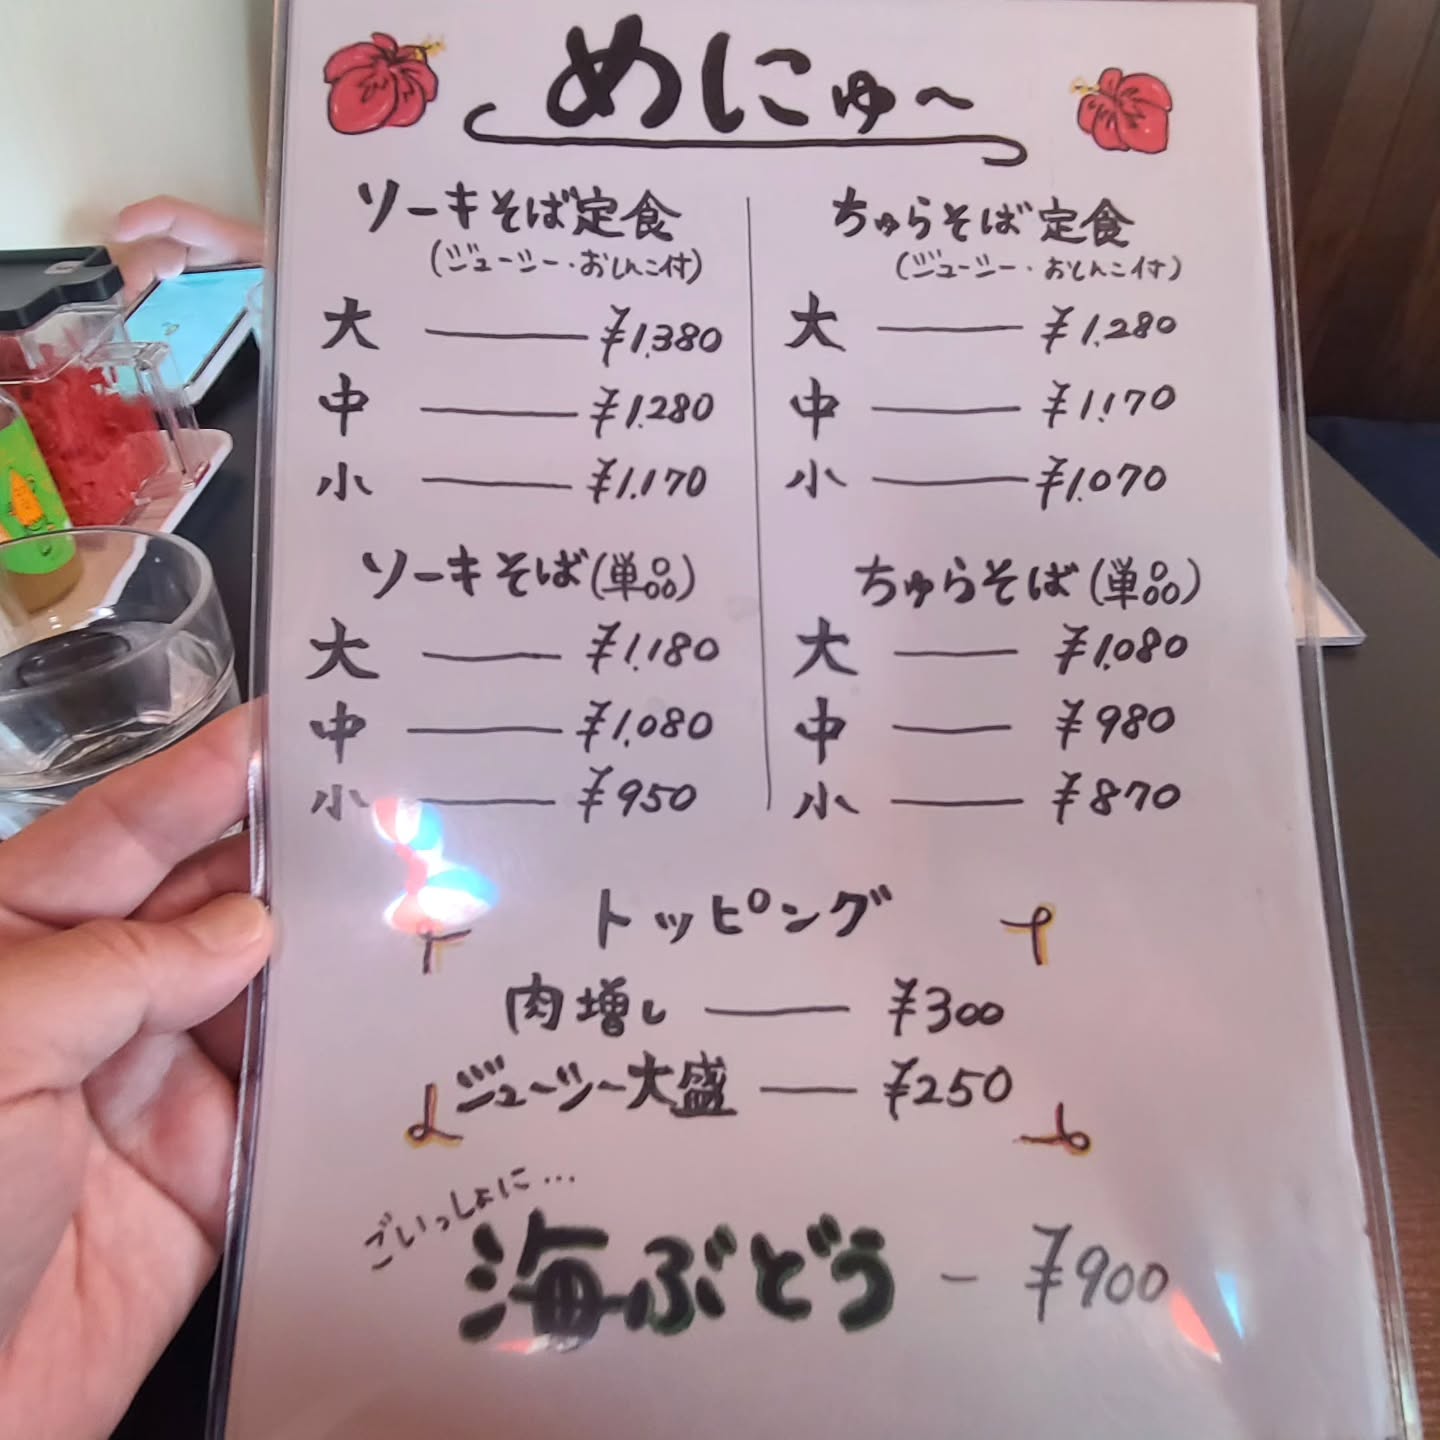 めにゅ〜
ソーキそば定食
(ジューシー・おしんこ付)
大 ¥1,380
中 ¥1,280
小 ¥1,170
ソーキそば(単品)
大 ¥1,180
中 ¥1,080
小 ¥950
ちゅらそば定食
(ジューシー・おしんこ付)
大 ¥1,280
中 ¥1,170
小 ¥1,070
ちゅらそば(単品)
大 ¥1,080
中 ¥980
小 ¥870
トッピング
肉増し ¥300
ジューシー大盛 ¥250
ごいっしょに...
海ぶどう - ¥900